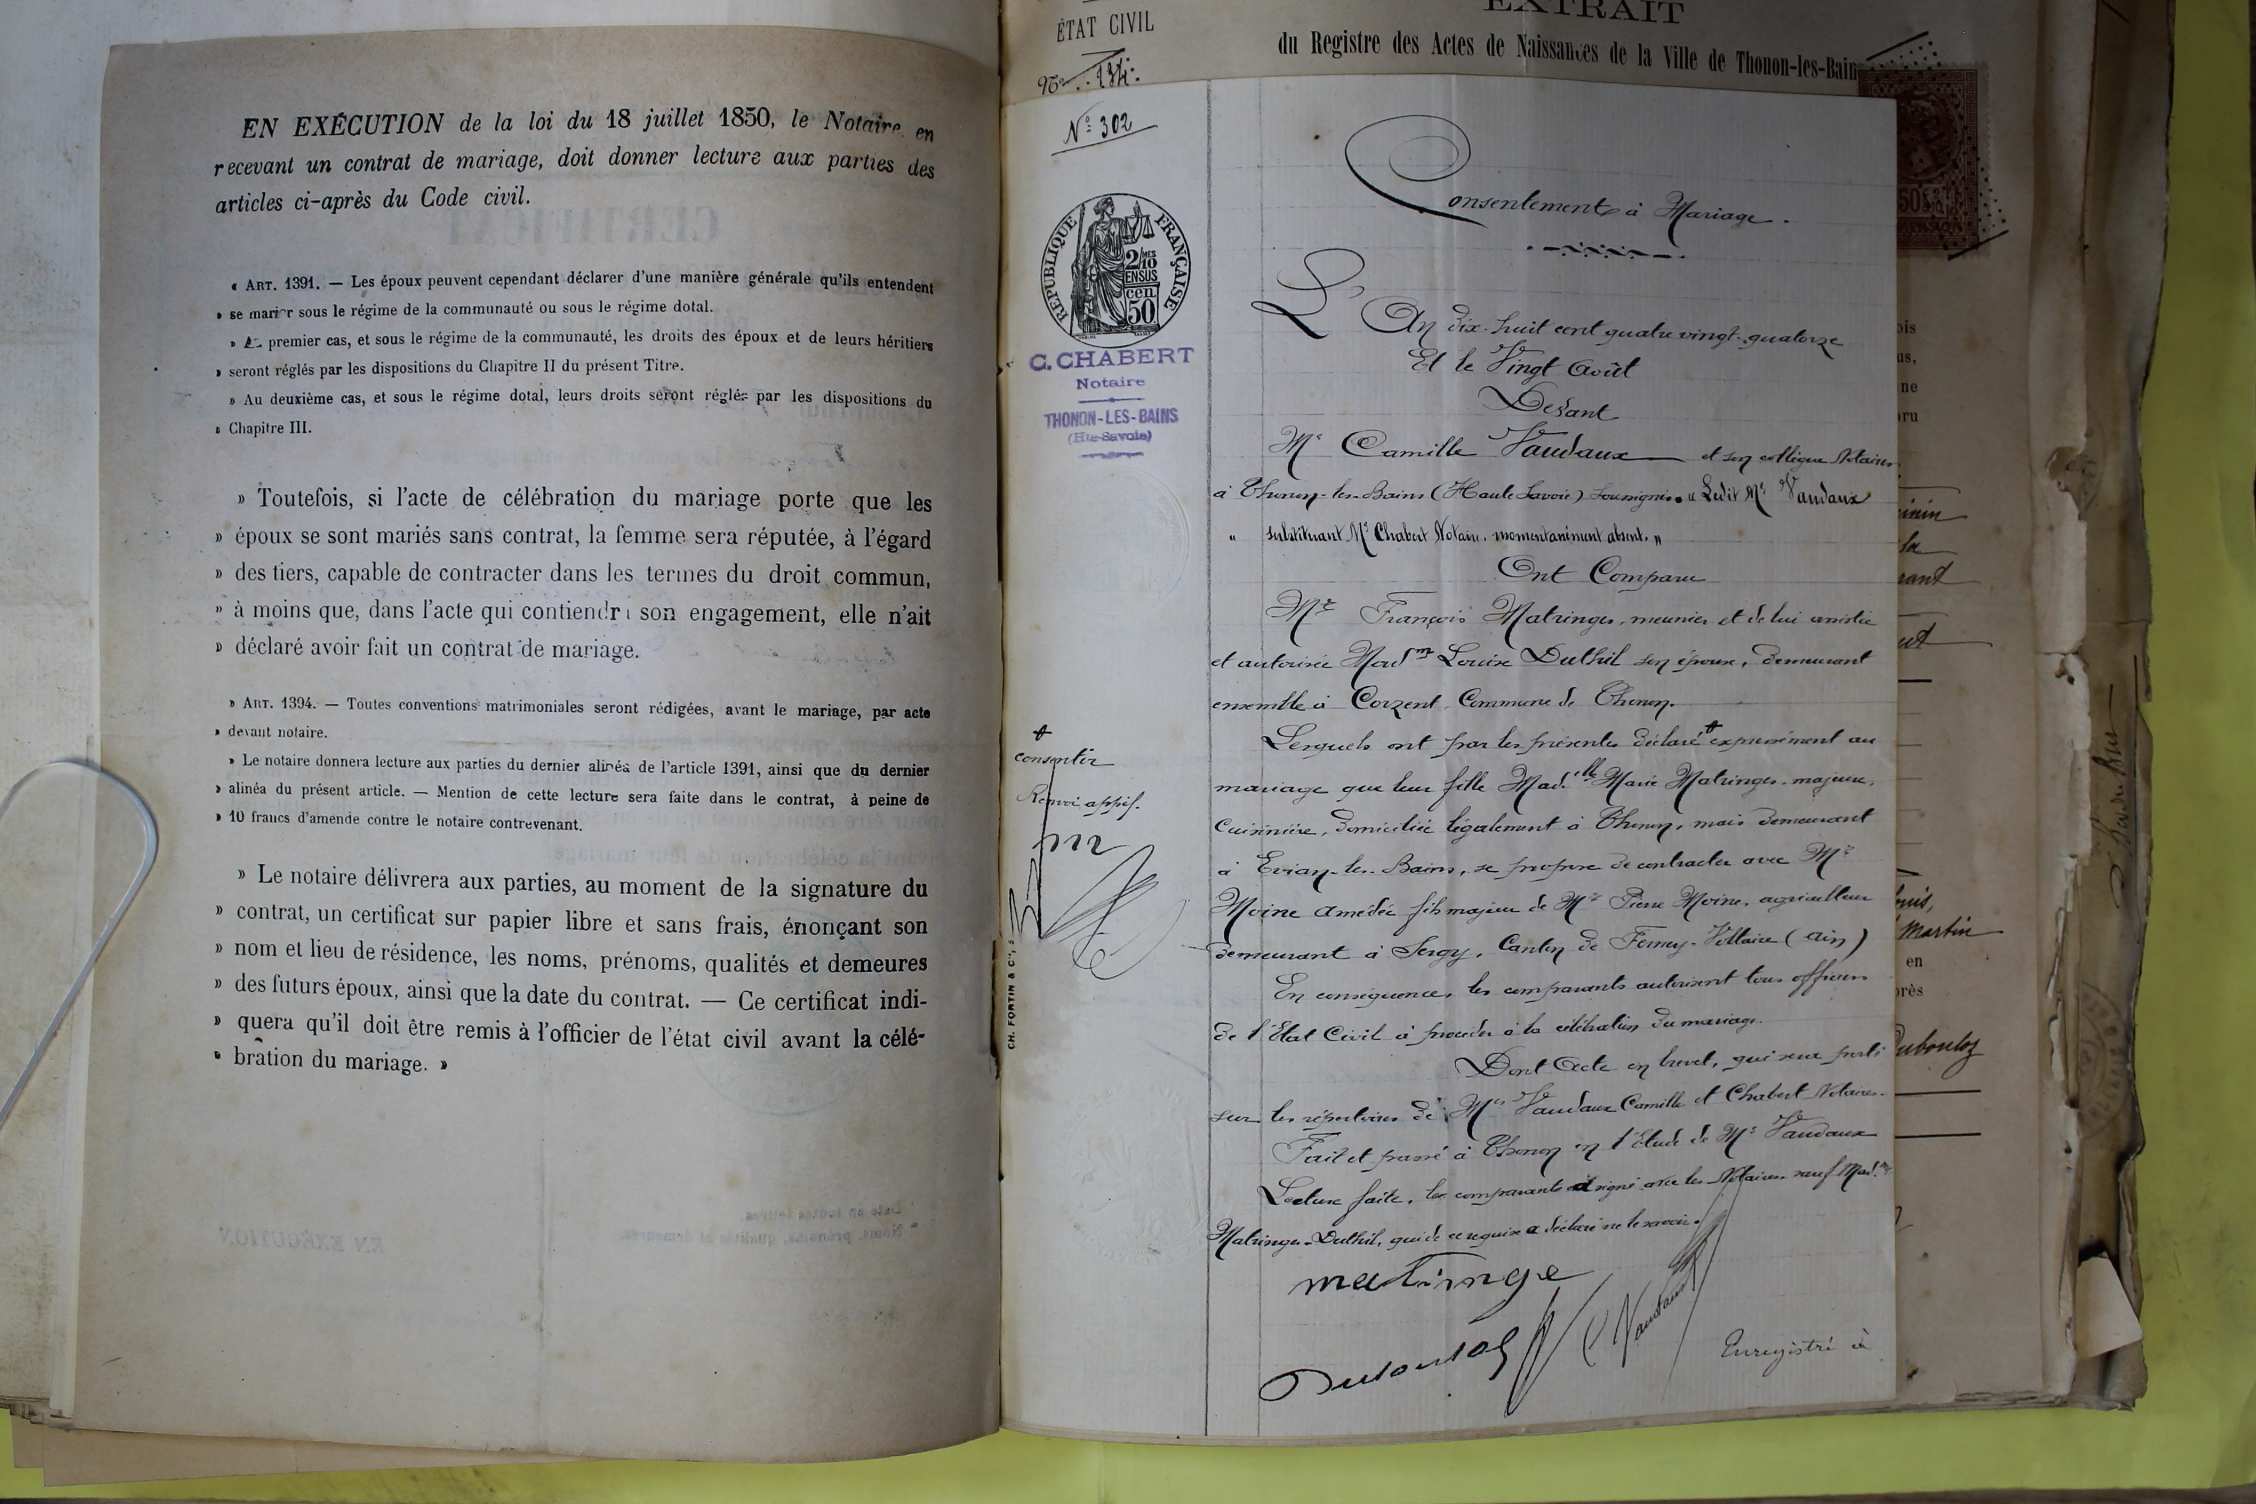 EN EXÉCUTION de la loi du 18 juillet 1850, le Notaire en
recevant un contrat de mariage, doit donner lecture aux parties des
articles ci-après du Code civil.
« ART. 1391. — Les époux peuvent cependant déclarer d'une manière générale qu'ils entendent
» se marier sous le régime de la communauté ou sous le régime dotal.
» premier cas, et sous le régime de la communauté, les droits des époux et de leurs héritiers
» seront réglés par les dispositions du Chapitre II du présent Titre.
» Au deuxième cas, et sous le régime dotal, leurs droits seront réglés par les dispositions du
» Chapitre III.
» Toutefois, si l'acte de célébration du mariage porte que les
» époux se sont mariés sans contrat, la femme sera réputée, à l'égard
» des tiers, capable de contracter dans les termes du droit commun,
» à moins que, dans l'acte qui contiendra son engagement, elle n'ait
» déclaré avoir fait un contrat de mariage.
» ART. 1394. — Toutes conventions matrimoniales seront rédigées, avant le mariage, par acte
» devant notaire.
» Le notaire donnera lecture aux parties du dernier alinéa de l'article 1391, ainsi que du dernier
» alinéa du présent article. — Mention de cette lecture sera faite dans le contrat, à peine de
» 10 francs d'amende contre le notaire contrevenant.
» Le notaire délivrera aux parties, au moment de la signature du
» contrat, un certificat sur papier libre et sans frais, énonçant son
» nom et lieu de résidence, les noms, prénoms, qualités et demeures
» des futurs époux, ainsi que la date du contrat. — Ce certificat indi-
» quera qu'il doit être remis à l'officier de l'état civil avant la célé-
» bration du mariage. »
EXTRAIT
ÉTAT CIVIL
du Registre des Actes de Naissances de la Ville de Thonon-les-Bain
No 134
No 302
RÉPUBLIQUE FRANÇAISE
2/10 MES
EN SUS
50 cen
C. CHABERT
Notaire
THONON-LES-BAINS
(Hte-Savoie)
Consentement à Mariage.
L'An dix-huit cent quatre vingt-quatorze
Et le Vingt Août
Devant
Me Camille Vaudaux et son collègue Notaires
à Thonon-les-Bains (Haute Savoie) soussignés. « Ledit Me Vaudaux
« substituant Me Chabert Notaire, momentanément absent. »
Ont Comparu
Mr François Matringe, meunier et de lui assistée
et autorisée Madme Louise Duthil son épouse, demeurant
ensemble à Corzent, Commune de Thonon.
Lesquels ont par les présentes déclaré + expressément au
mariage que leur fille Madelle Marie Matringe, majeure,
cuisinière, domiciliée légalement à Thonon, mais demeurant
à Evian-les-Bains, se propose de contracter avec Mr
Moine Amédée fils majeur de Mr Pierre Moine, agriculteur
demeurant à Sergy, Canton de Ferney-Voltaire (Ain)
En conséquence, les comparants autorisent tous officiers
de l'Etat Civil à procéder à la célébration du mariage.
Dont Acte en brevet, qui sera porté
sur les répertoires de Mes Vaudaux Camille et Chabert Notaires.
Fait et passé à Thonon en l'Etude de Me Vaudaux
Lecture faite, les comparants signé avec les Notaires sauf Madme
Matringe-Duthil, qui de ce requise a déclaré ne le savoir.
+
consentir
Renvoi app.
CH. FORTIN & Cie
matinge
Dubouloz
C Vaudaux
Enregistré à
ois
us,
ne
rant
Martin
en
près
Dubouloz